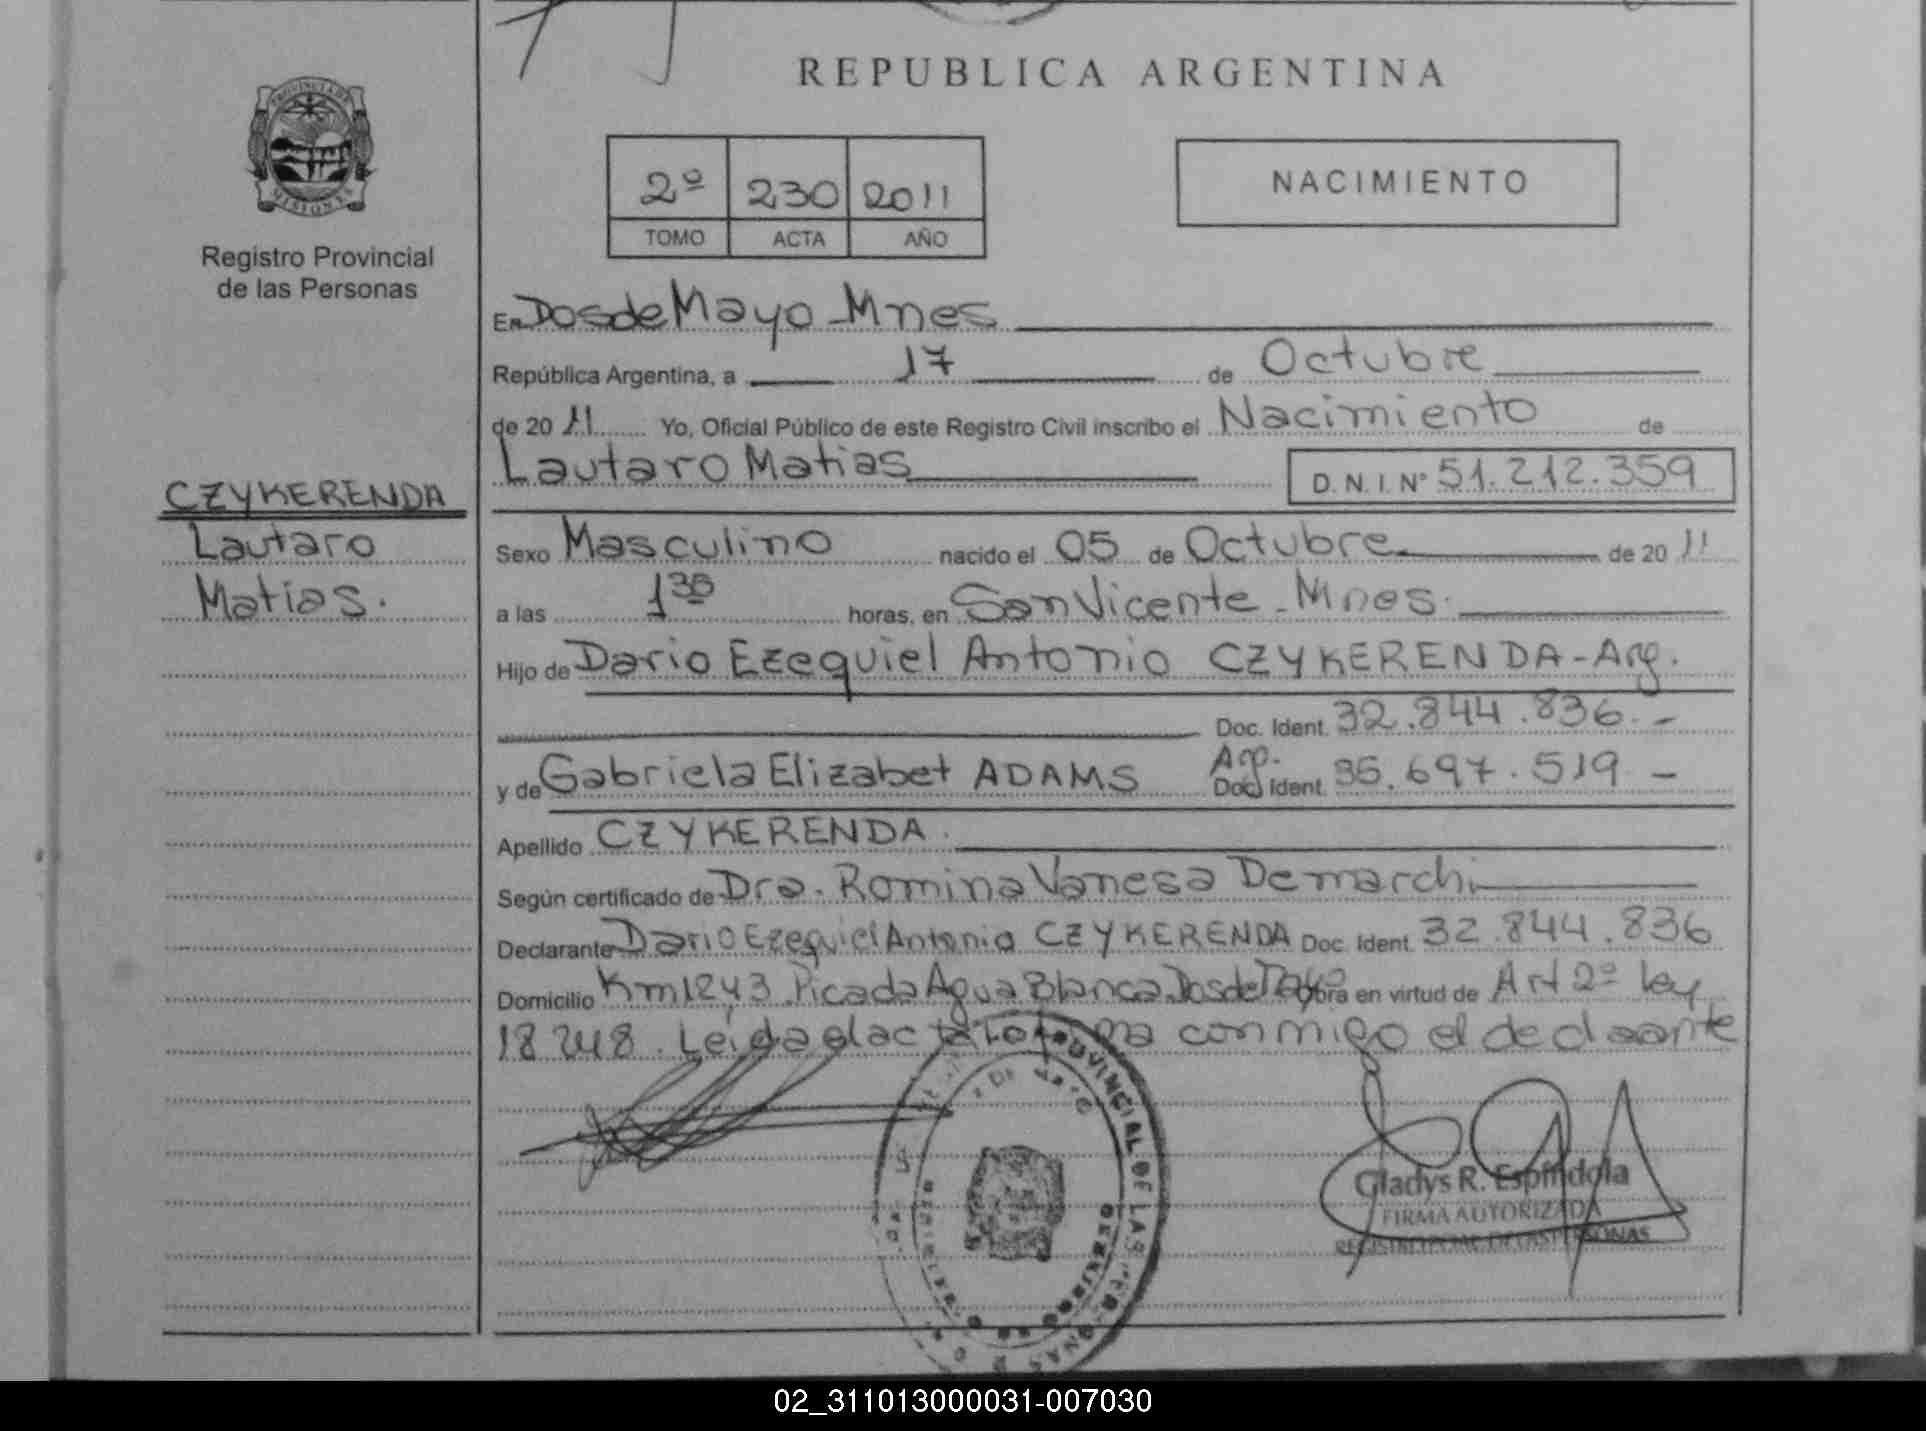 REPUBLICA ARGENTINA
PROVINCIA DE
MISIONES
Registro Provincial
de las Personas
2º 230 2011
TOMO ACTA AÑO
NACIMIENTO
En Dos de Mayo - Mnes
República Argentina, a 17 de Octubre
de 20 11 Yo, Oficial Público de este Registro Civil inscribo el Nacimiento de
Lautaro Matias D. N. I. Nº 51.212.359
CZYKERENDA
Lautaro
Matias.
Sexo Masculino nacido el 05 de Octubre de 20 11
a las 1 30 horas, en San Vicente - Mnes.
Hijo de Dario Ezequiel Antonio CZYKERENDA - Arg.
Doc. Ident. 32.844.836.-
y de Gabriela Elizabet ADAMS Arg. Doc. Ident. 35.697.519 -
Apellido CZYKERENDA.
Según certificado de Dra. Romina Vanesa Demarchi
Declarante Dario Ezequiel Antonio CZYKERENDA Doc. Ident. 32.844.836
Domicilio Km 1243 Picada Agua Blanca Dos de Mayo Obra en virtud de Art 2º Ley
18248. Leida el acta firma conmigo el declarante
PROVINCIAL DE LAS PERSONAS
Gladys R. Espíndola
FIRMA AUTORIZADA
REGISTRO PCIAL. DE LAS PERSONAS
02_311013000031-007030